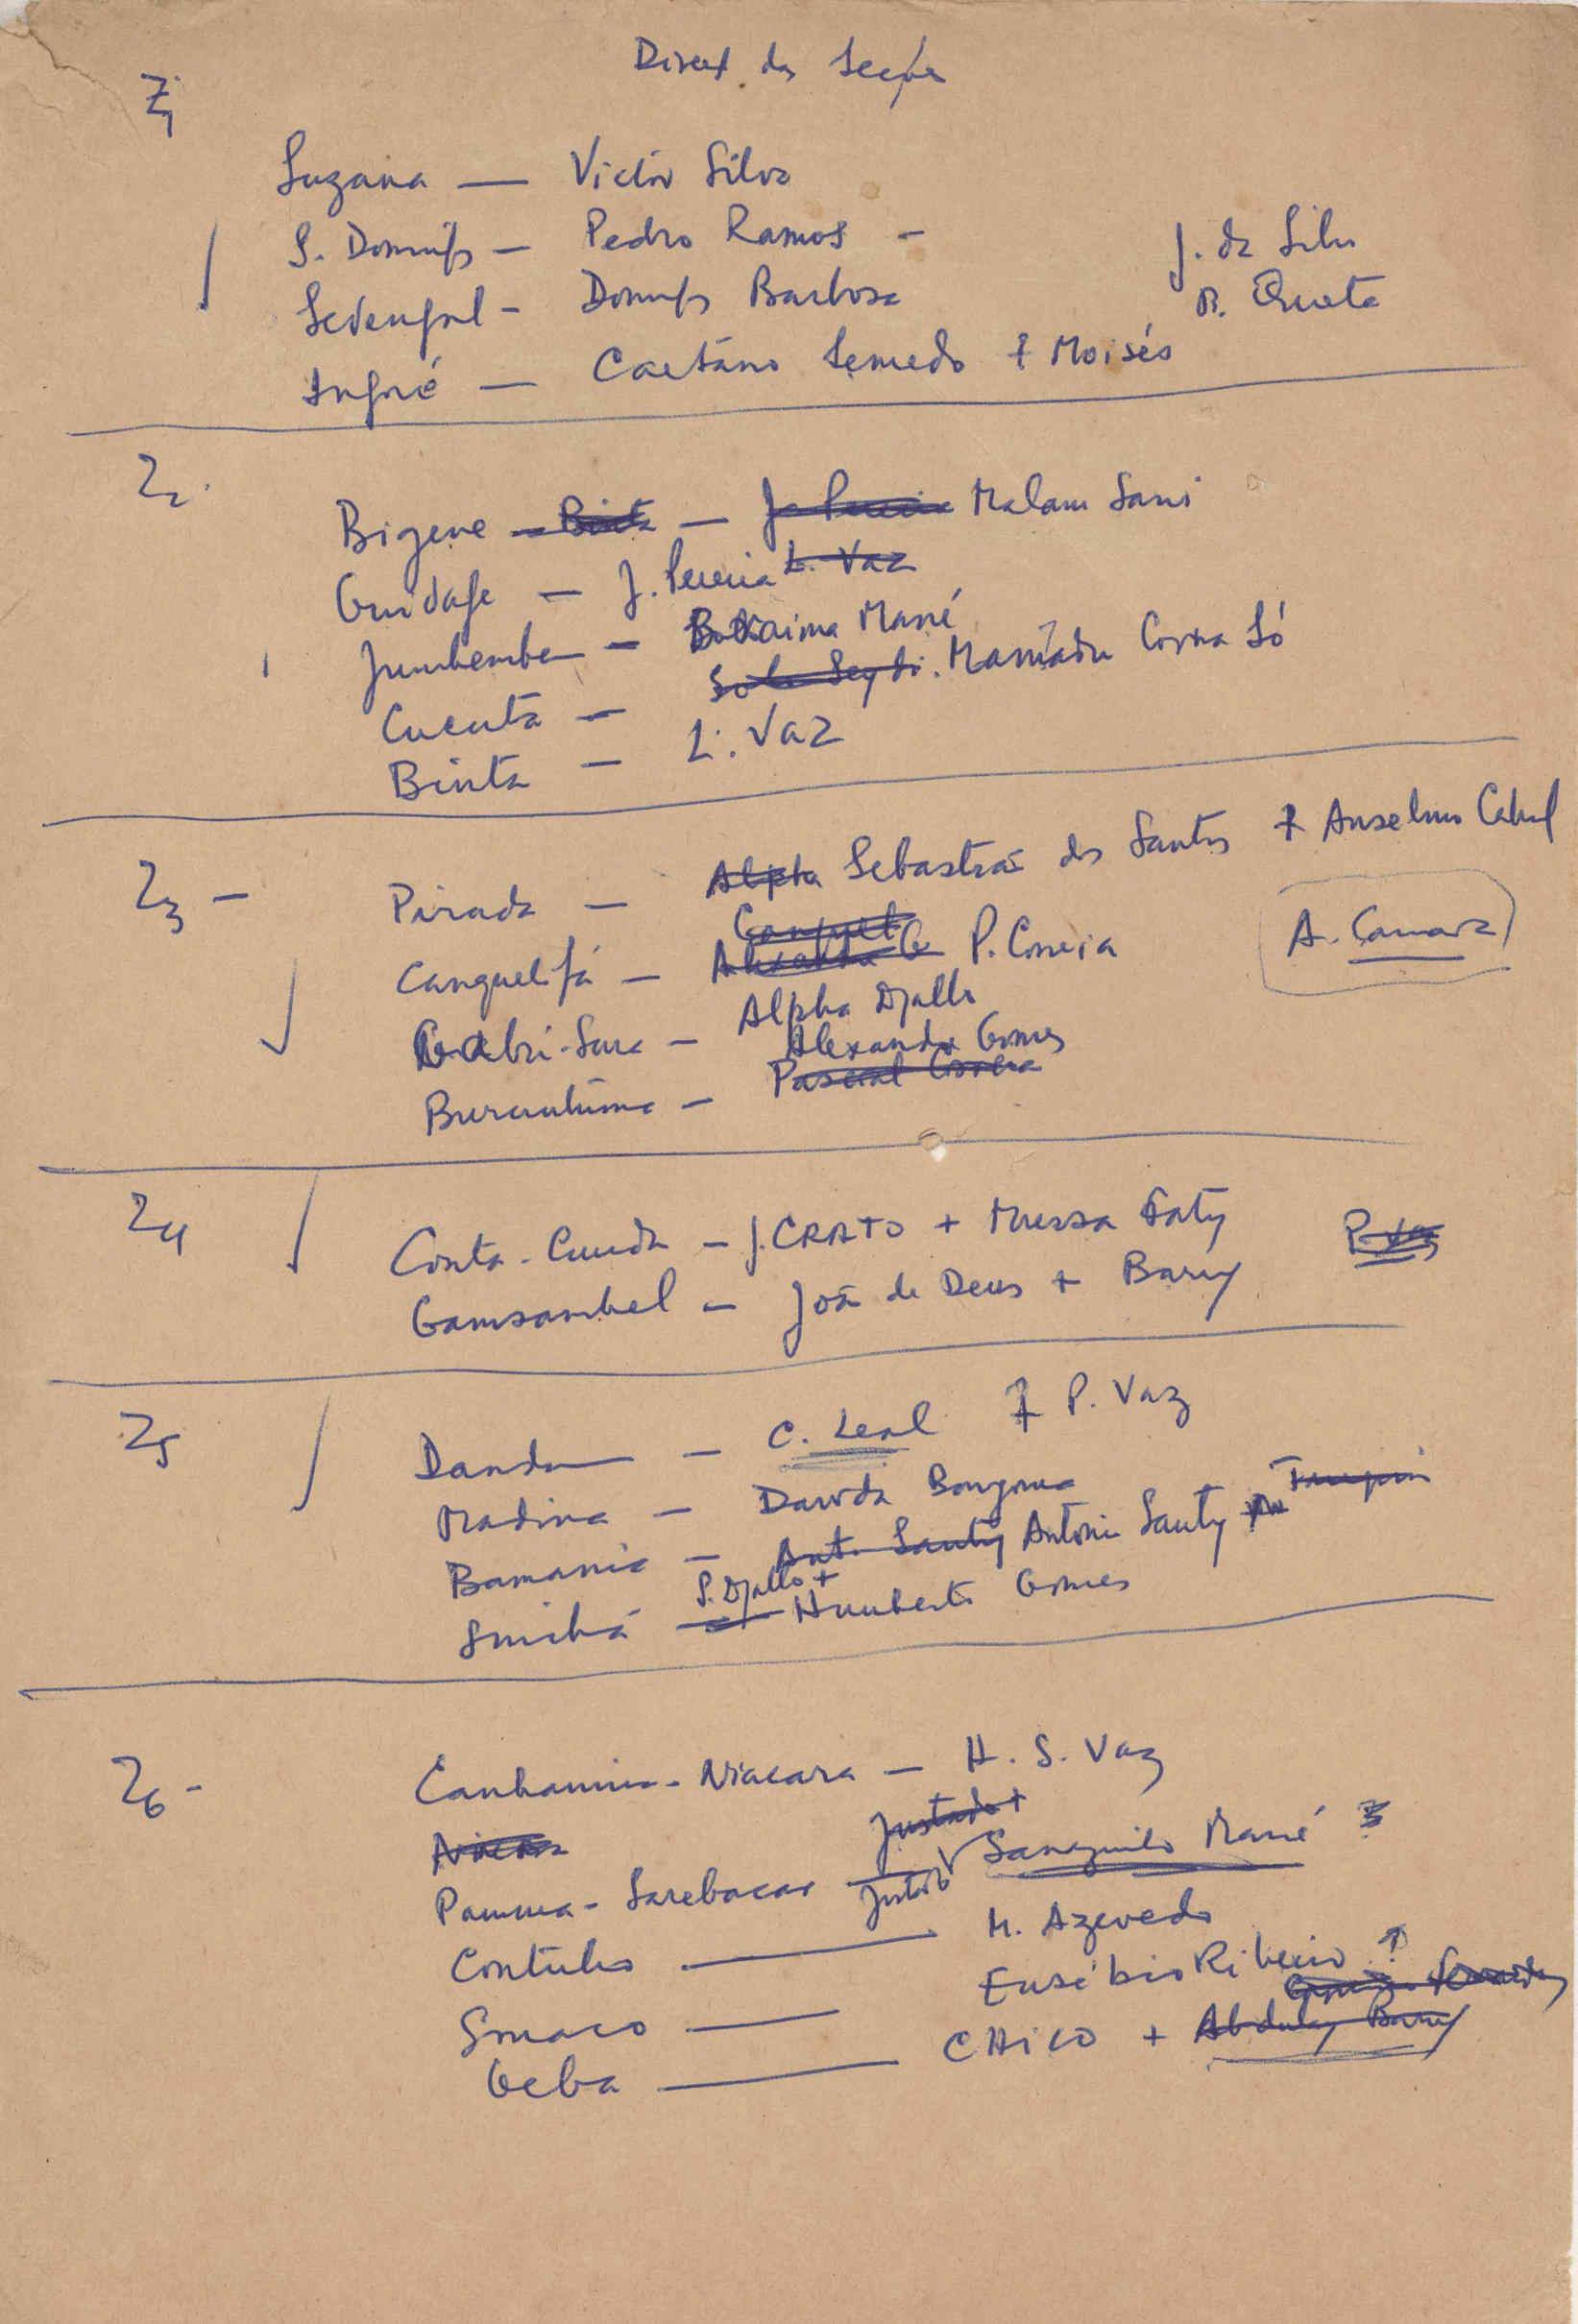 Direct. das Secções
Z1
Suzana — Victor Silva
S. Domingos — Pedro Ramos — J. da Silva
Sedengal — Domingos Barbosa B. Queta
Ingoré — Caetano Semedo + Moisés
Z2.
Bigene — Binta — J. Pereira Malam Sani
Guidage — J. Pereira L. Vaz
Jumbembem — Braima Mané
Cucuta — Mamadu Corna Só
Binta — L. Vaz
Z3 — Pirada — Alpha Sebastião dos Santos + Anselmo Cabral
Canquelifá — Alexandre G P. Correia A. Camara
Gabú-Sara — Alpha Djallo
Alexandre Gomes
Buruntuma — Pascoal Correia
Z4
Conta-Cunda — J. CRATO + Mussa Faty P. Vaz
Gamsambel — João de Deus + Barry
Z5
Dandum — C. Leal + P. Vaz
Madina — Dauda Bangoura
Bamania — Ant. Santy Antonio Santy
S. Djallo +
Humberto Gomes
Z6 - Canhamina-Niacara — H. S. Vaz
Justado +
Pamma-Sarebacar — Justado Sanguilo Mané
Contubo — M. Azevedo
Eusébio Ribeiro ?
Geba — CHICO + Abdulay Barry